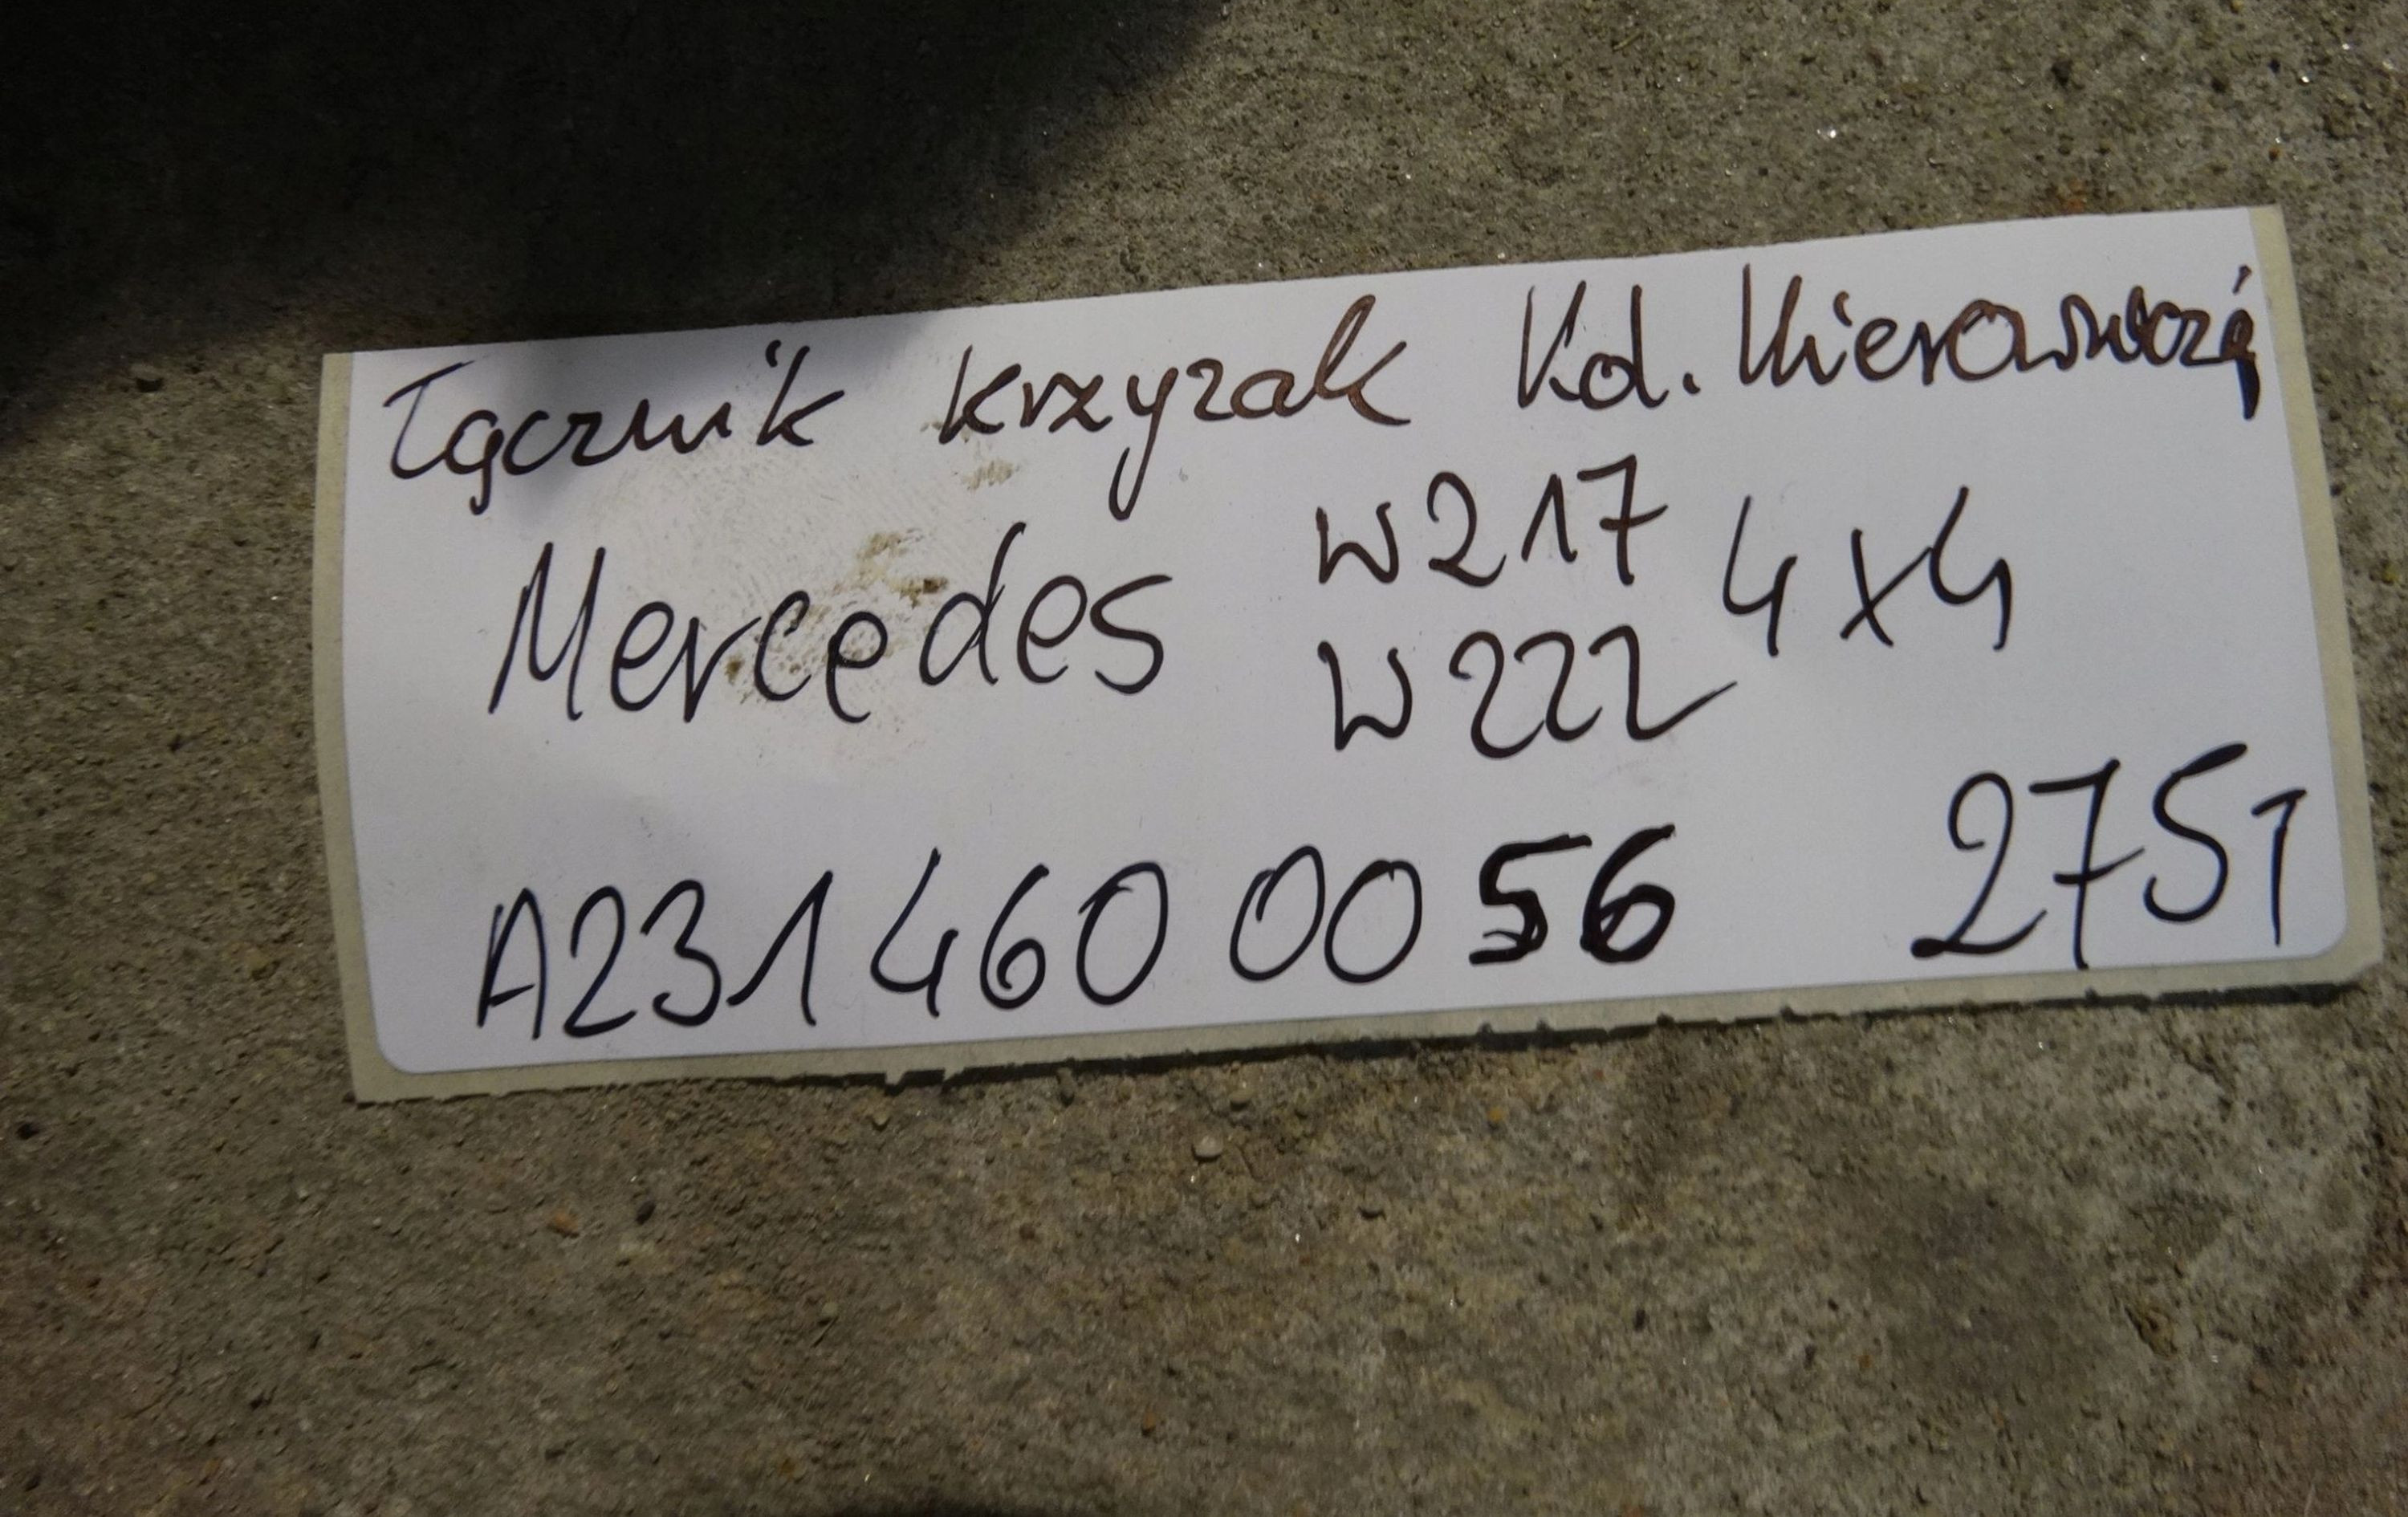 Łącznik krzyzak Kol. Kierowniczą
Mercedes W217 4x4
W222
A231 460 00 56 2751